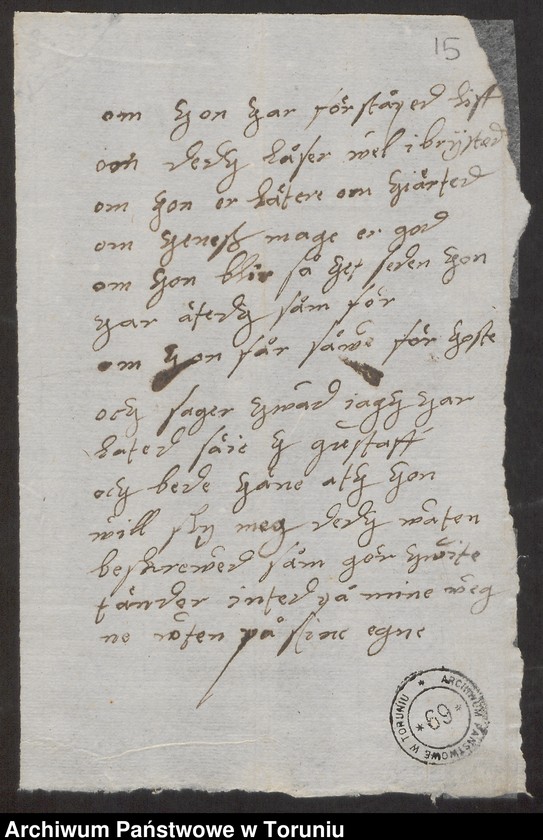 15
om hon har förståped lift
om dedh låser wel i brÿsted
om hon er lätere om hiärted
om heneß mage er god
om hon blir så het seden hon
har ätedh såm för
om hon får såwe för hoste
och sager hwad iagh har
lated säie h gustaff
och bede häne ath hon
will sly meg dedh waten
beskrewed såm gör hwite
tänder inted på mine weg
ne uten på sine egne
ARCHIWUM PAŃSTWOWE W TORUNIU
* 69 *
Archiwum Państwowe w Toruniu